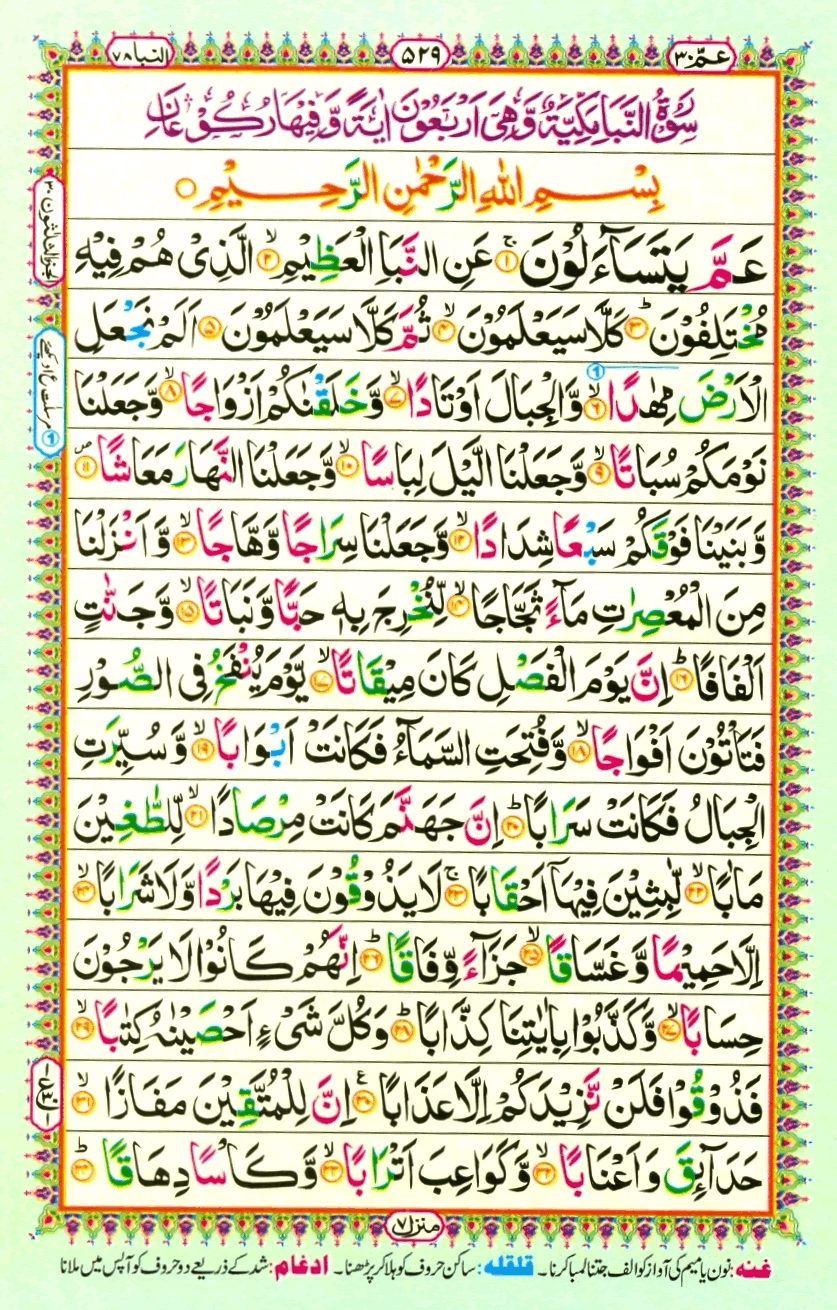 عم ۳۰
۵۲۹
النبا ۷۸
سُوْرَةُ النَّبَاِ مَكِّيَّةٌ وَّهِیَ اَرْبَعُوْنَ اٰيَةً وَّفِيْهَا رُكُوْعَانِ
بِسْمِ اللهِ الرَّحْمٰنِ الرَّحِيْمِ
عَمَّ يَتَسَآءَلُوْنَ ۚ﴿۱﴾ عَنِ النَّبَاِ الْعَظِيْمِ ۙ﴿۲﴾ الَّذِیْ هُمْ فِيْهِ
مُخْتَلِفُوْنَ ؕ﴿۳﴾ كَلَّا سَيَعْلَمُوْنَ ۙ﴿۴﴾ ثُمَّ كَلَّا سَيَعْلَمُوْنَ ﴿۵﴾ اَلَمْ نَجْعَلِ
الْاَرْضَ مِهٰدًا ۙ﴿۶﴾ وَّالْجِبَالَ اَوْتَادًا ۪ۙ﴿۷﴾ وَّخَلَقْنٰكُمْ اَزْوَاجًا ۙ﴿۸﴾ وَّجَعَلْنَا
نَوْمَكُمْ سُبَاتًا ۙ﴿۹﴾ وَّجَعَلْنَا الَّيْلَ لِبَاسًا ۙ﴿۱۰﴾ وَّجَعَلْنَا النَّهَارَ مَعَاشًا ۪﴿۱۱﴾
وَّبَنَيْنَا فَوْقَكُمْ سَبْعًا شِدَادًا ۙ﴿۱۲﴾ وَّجَعَلْنَا سِرَاجًا وَّهَّاجًا ۪ۙ﴿۱۳﴾ وَّاَنْزَلْنَا
مِنَ الْمُعْصِرٰتِ مَآءً ثَجَّاجًا ۙ﴿۱۴﴾ لِّنُخْرِجَ بِهٖ حَبًّا وَّنَبَاتًا ۙ﴿۱۵﴾ وَّجَنّٰتٍ
اَلْفَافًا ؕ﴿۱۶﴾ اِنَّ يَوْمَ الْفَصْلِ كَانَ مِيْقَاتًا ۙ﴿۱۷﴾ يَّوْمَ يُنْفَخُ فِی الصُّوْرِ
فَتَاْتُوْنَ اَفْوَاجًا ۙ﴿۱۸﴾ وَّفُتِحَتِ السَّمَآءُ فَكَانَتْ اَبْوَابًا ۙ﴿۱۹﴾ وَّسُيِّرَتِ
الْجِبَالُ فَكَانَتْ سَرَابًا ؕ﴿۲۰﴾ اِنَّ جَهَنَّمَ كَانَتْ مِرْصَادًا ۙ﴿۲۱﴾ لِّلطّٰغِيْنَ
مَاٰبًا ۙ﴿۲۲﴾ لّٰبِثِيْنَ فِيْهَآ اَحْقَابًا ۚ﴿۲۳﴾ لَا يَذُوْقُوْنَ فِيْهَا بَرْدًا وَّلَا شَرَابًا ۙ﴿۲۴﴾
اِلَّا حَمِيْمًا وَّغَسَّاقًا ۙ﴿۲۵﴾ جَزَآءً وِّفَاقًا ؕ﴿۲۶﴾ اِنَّهُمْ كَانُوْا لَا يَرْجُوْنَ
حِسَابًا ۙ﴿۲۷﴾ وَّكَذَّبُوْا بِاٰيٰتِنَا كِذَّابًا ؕ﴿۲۸﴾ وَكُلَّ شَیْءٍ اَحْصَيْنٰهُ كِتٰبًا ۙ﴿۲۹﴾
فَذُوْقُوْا فَلَنْ نَّزِيْدَكُمْ اِلَّا عَذَابًا ﴿۳۰﴾ ع اِنَّ لِلْمُتَّقِيْنَ مَفَازًا ۙ﴿۳۱﴾
حَدَآئِقَ وَاَعْنَابًا ۙ﴿۳۲﴾ وَّكَوَاعِبَ اَتْرَابًا ۙ﴿۳۳﴾ وَّكَاْسًا دِهَاقًا ؕ﴿۳۴﴾
منزل ۷
غنه: نون یا میم کی آواز کو الف جتنا لمبا کرنا۔ قلقله: ساکن حروف کو ہلا کر پڑھنا۔ ادغام: شد کے ذریعے دو حروف کو آپس میں ملانا